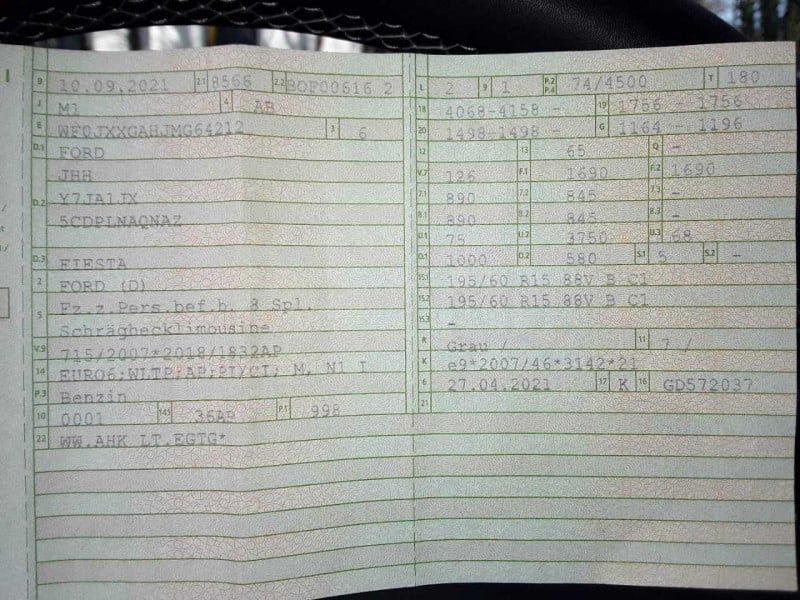 B 10.09.2021 2.1 8566 2.2 BOF00616 2
J M1 4 AB
E WF0JXXGAHJMG64212 3 6
D.1 FORD
JHH
D.2 Y7JA1JX
5CDPLNAQNAZ
D.3 FIESTA
2 FORD (D)
5 Fz.z.Pers.bef.b. 8 Spl.
Schräghecklimousine
V.9 715/2007*2018/1832AP
14 EURO6;WLTP;AP;PI/CI; M, N1 I
P.3 Benzin
10 0001 14.1 36AP P.1 998
22 WW.AHK LT.EGTG*
L 2 9 1 P.2 P.4 74/4500 T 180
18 4068-4158 - 19 1756 - 1756
20 1498-1498 - G 1164 - 1196
12 13 65 Q -
V.7 126 F.1 1690 F.2 1690
7.1 890 7.2 845 7.3 -
8.1 890 8.2 845 8.3 -
U.1 75 U.2 3750 U.3 68
O.1 1000 O.2 580 S.1 5 S.2 -
15.1 195/60 R15 88V B C1
15.2 195/60 R15 88V B C1
15.3 -
R Grau / 11 7 /
K e9*2007/46*3142*21
6 27.04.2021 17 K 16 GD572037
21